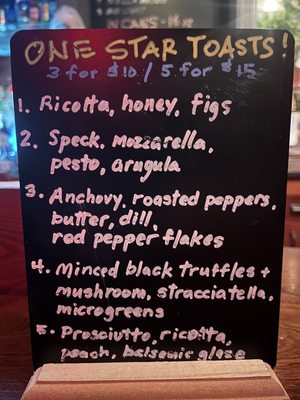 ONE STAR TOASTS!
3 for $10 / 5 for $15
1. Ricotta, honey, figs
2. Speck, Mozzarella,
pesto, arugula
3. Anchovy, roasted peppers,
butter, dill,
rod pepper flakes
4. Minced black truffles +
mushroom, stracciatella,
microgreens
5. Prosciutto, ricotta,
peach, balsamic glaze